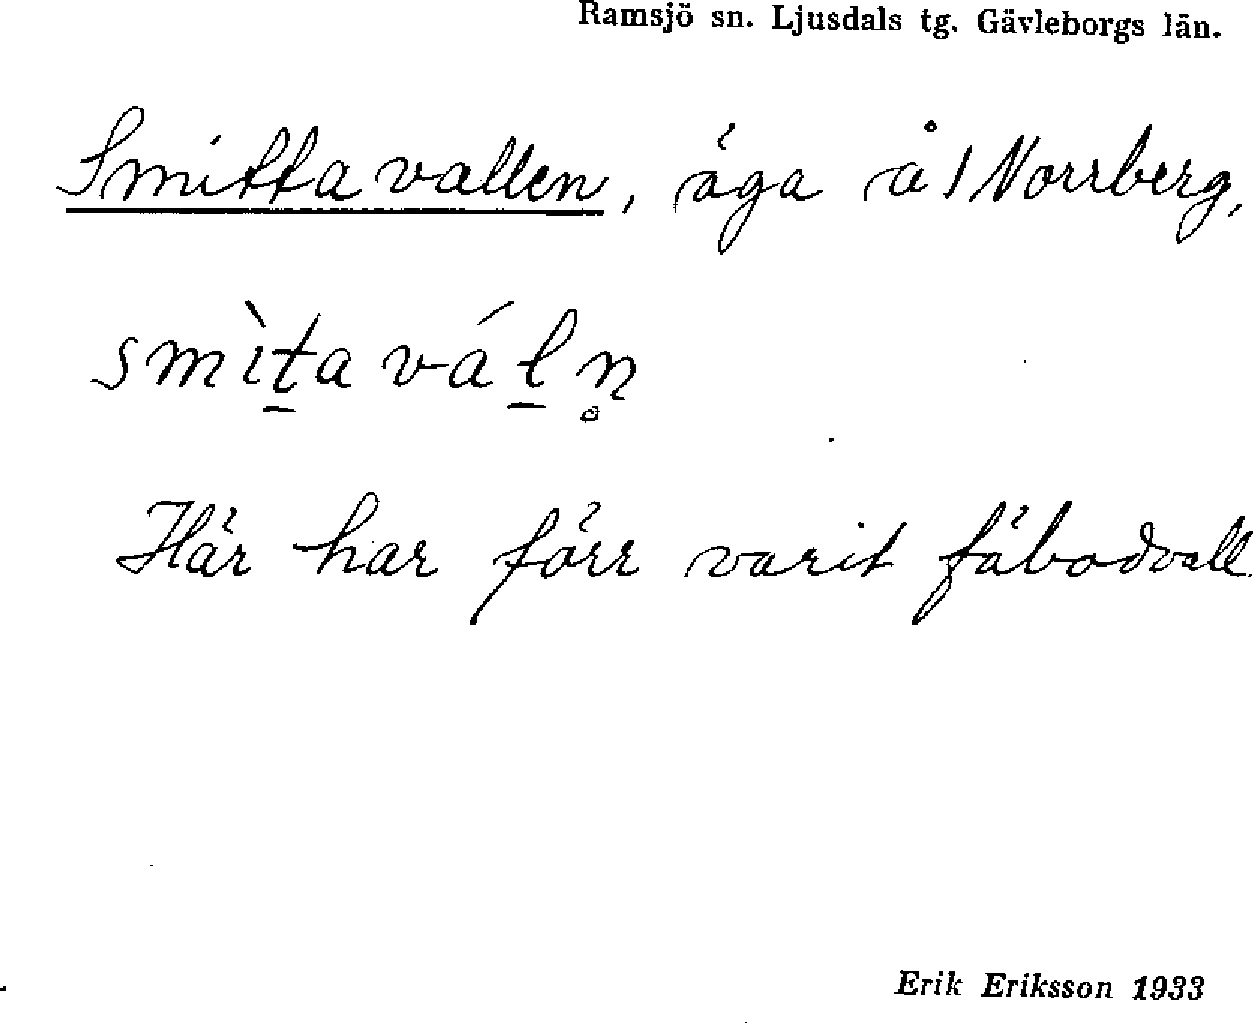 Ramsjö sn. Ljusdals tg. Gävleborgs län.
Smittavallen, äga å 1 Norrberg,
smìt̠a vál̠n̥
Här har förr varit fäbodvall
Erik Eriksson 1933